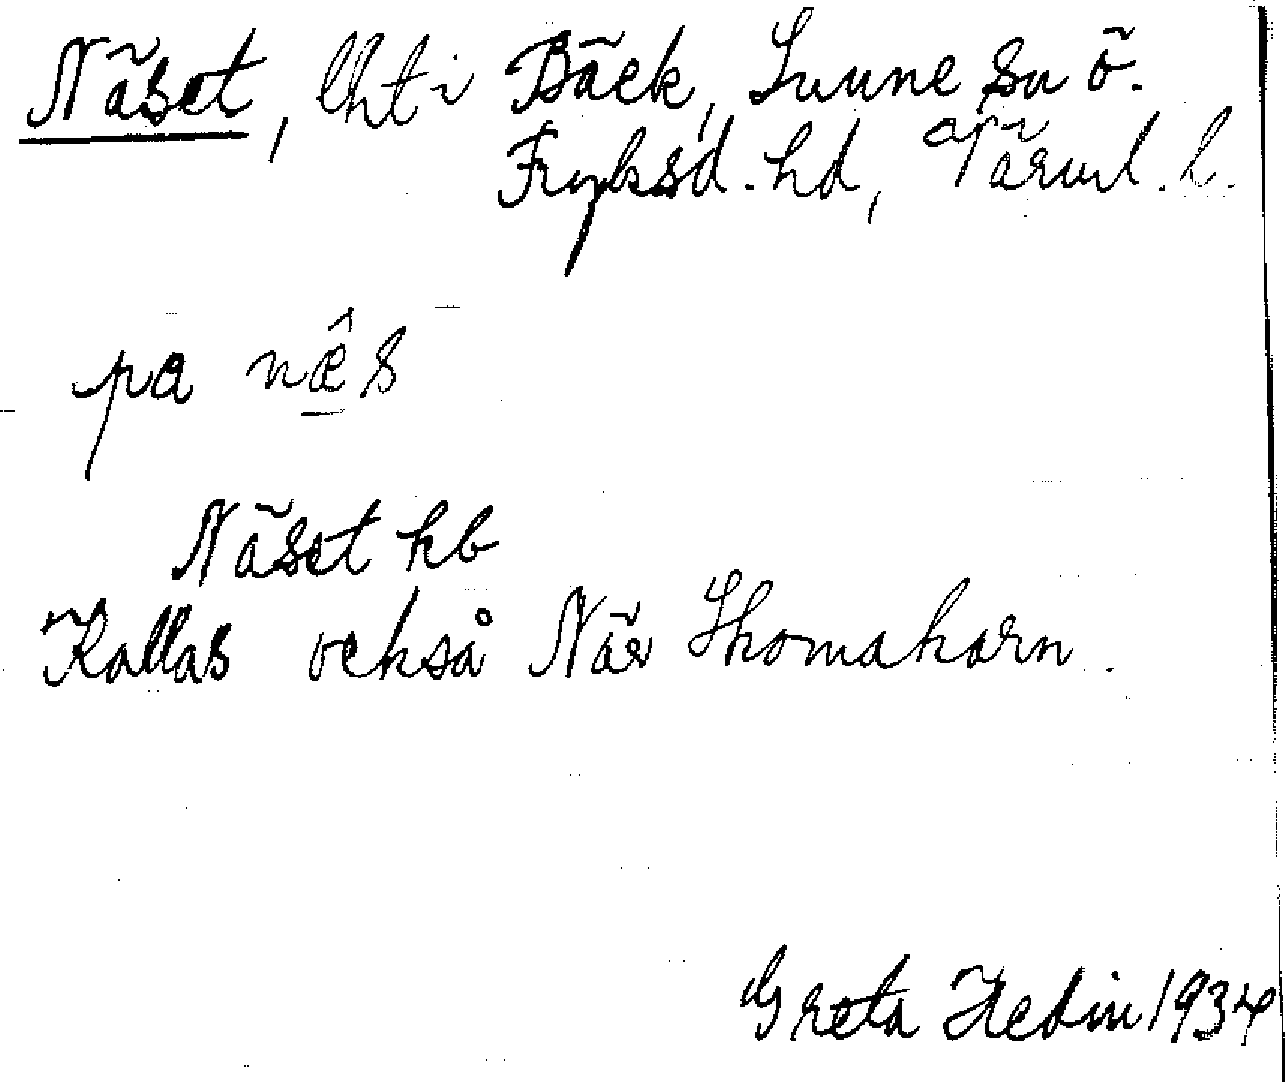 Näset, lht i Bäck, Sunne sn ö.
Fryksd. hd, Värml. l.
pa næ̂s
Näset hb
Kallas också När Skomakarn.
Greta Hedin 1934